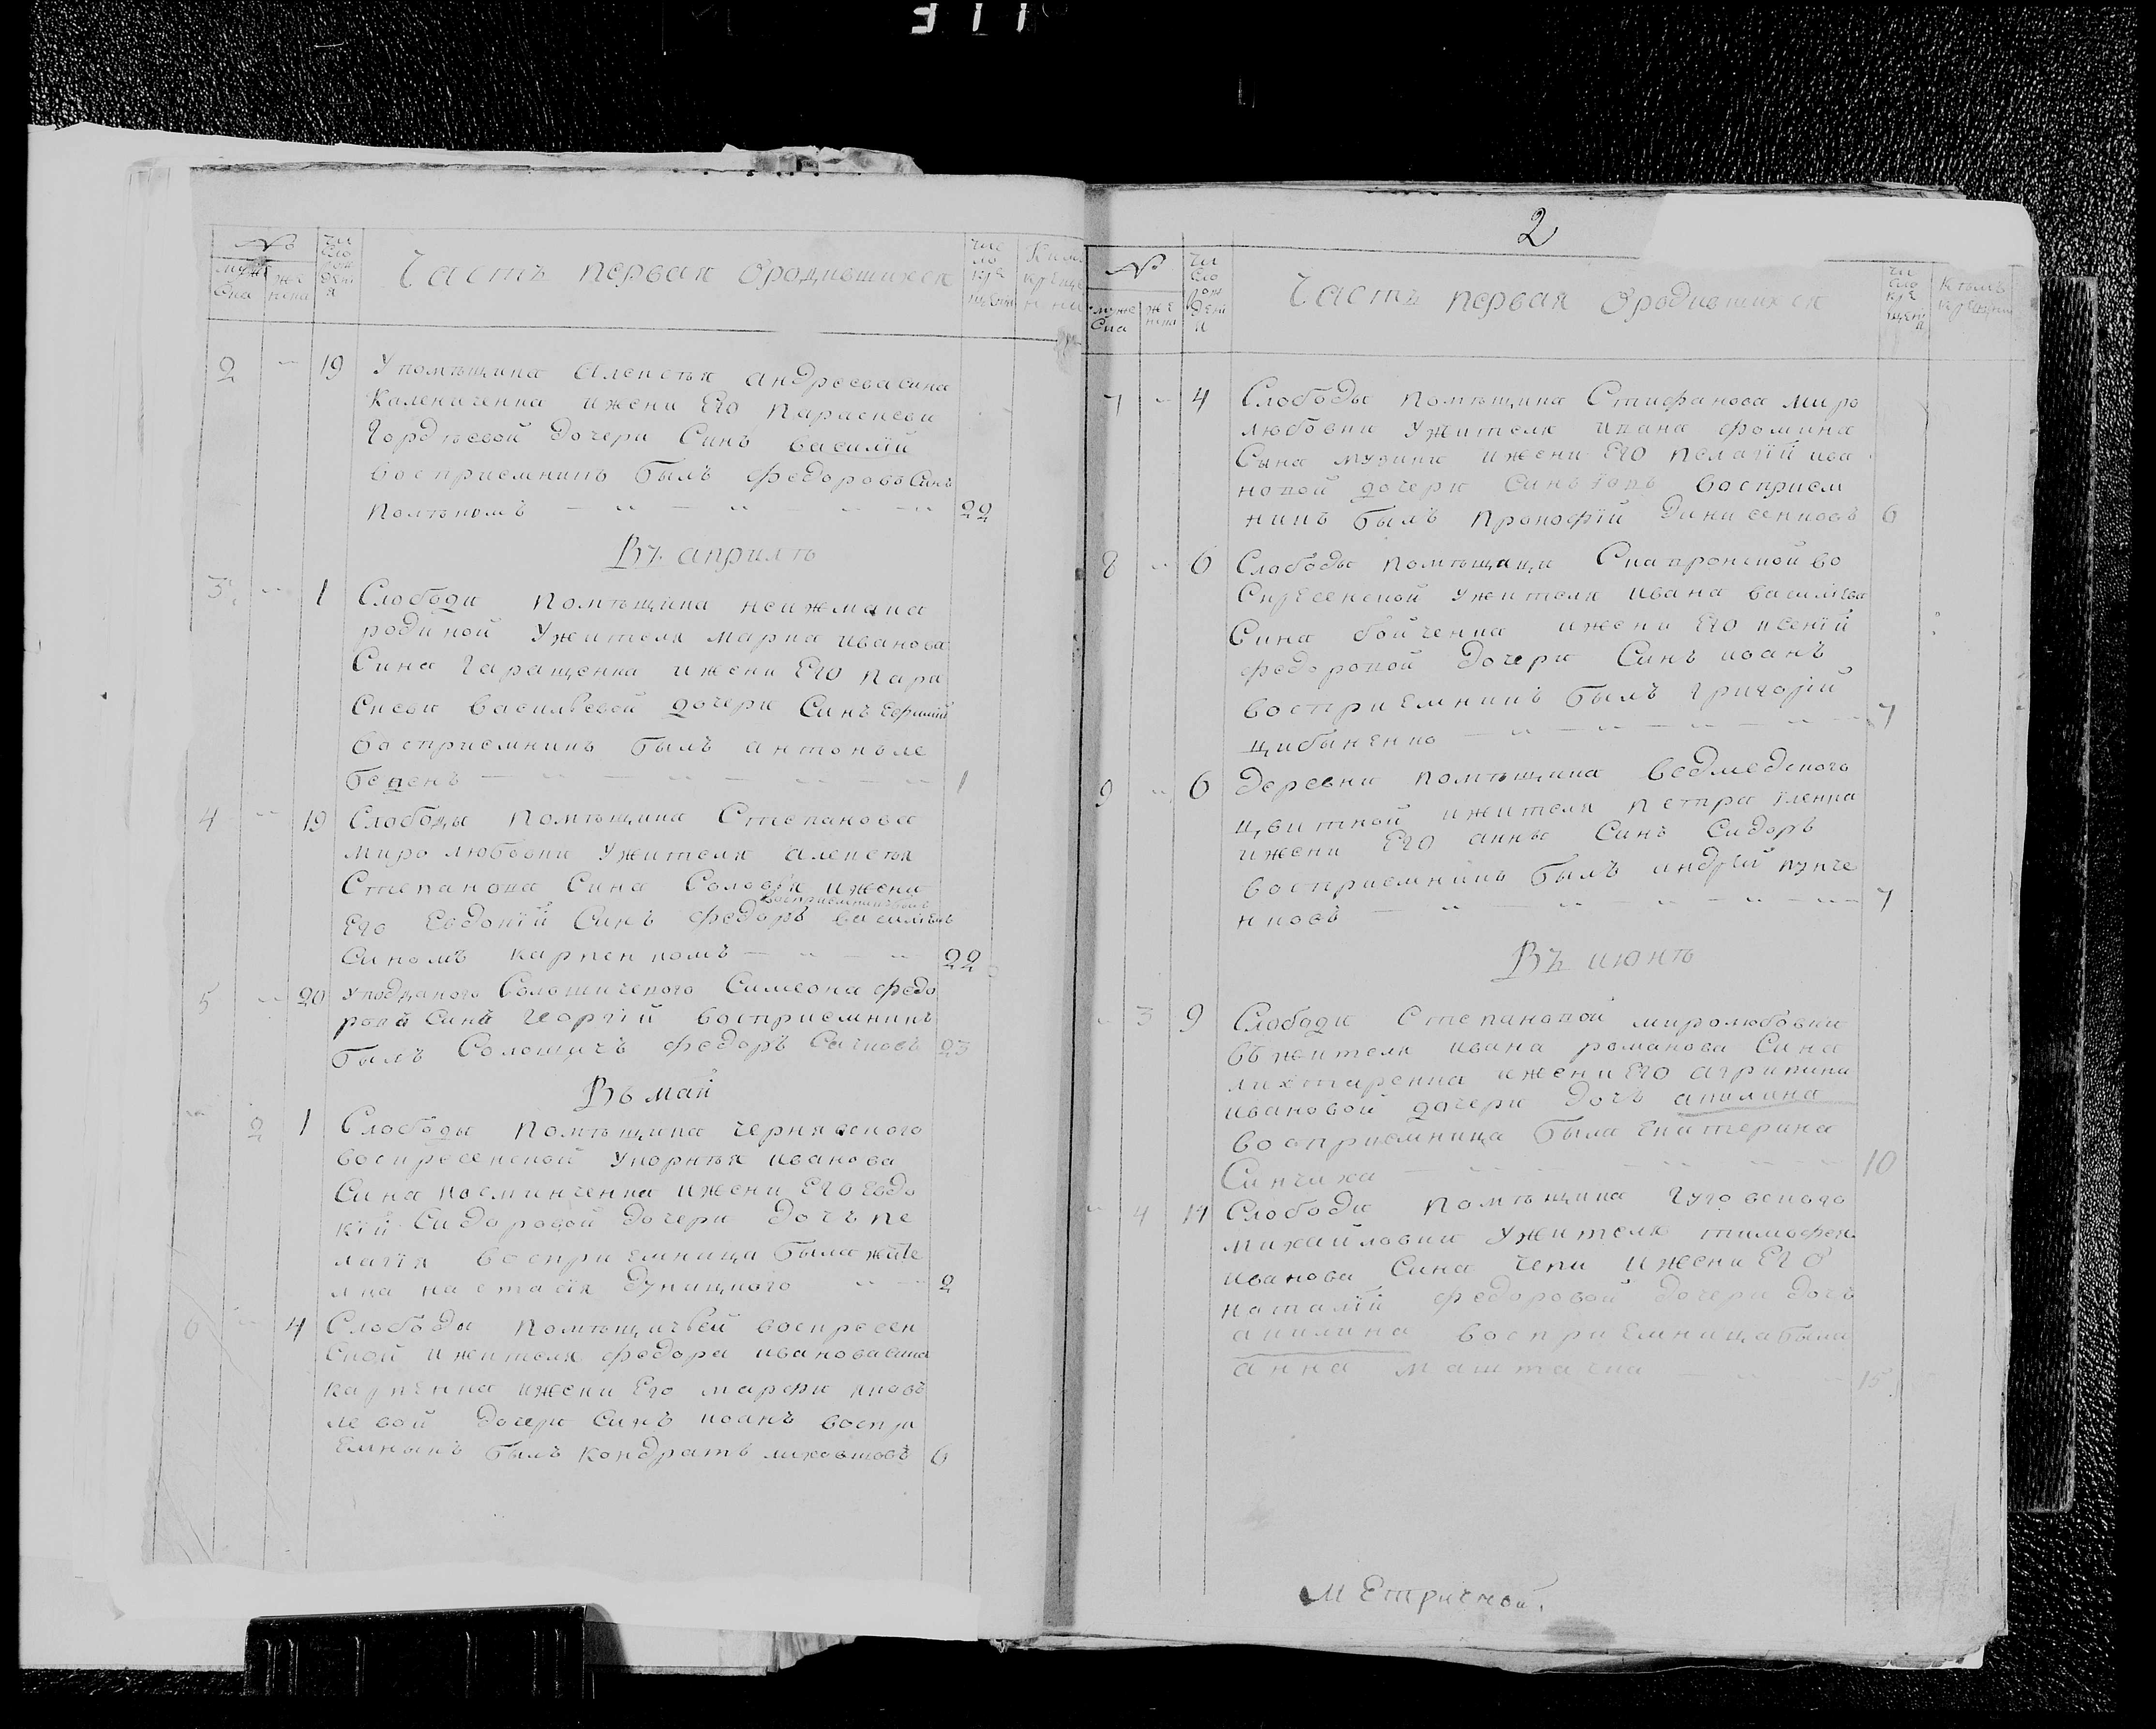 № 
муже
ска
же
нска
чи
сло
рож
дені
я
Часть первая Ородившихся
чис
ло
кре
щенія
Кем
креще
2 19 У помѣщика Алексѣя андреева сина
Калениченка ижени Его Параскеви
Гордѣевой дочери Синъ василій
восприемникъ былъ федоровъ Синъ
22
Въ априлѣ
3 1 Слободи помѣщика
родиной Ужителя марка иванова
Сина Гаращенка ижени Его пара
скеви васильевой дочери Синъ Ефимій
восприемникъ былъ антонъ ле
бедень 1
4 19 Слободы помѣщика Степанова
миро любовки Ужителя алексѣя
Степанова Сина Соловѣя ижени
восприемникъ былъ
Его Евдокій Синъ федоръ василіевъ
Синомъ карпенкомъ 22
5 20 Симеона федо
рова Сина георгій восприемникъ
былъ Солошичъ федоръ 23
Въ май
2 1 Слободы помѣщика чернявского
воскресенской Укорнѣя иванова
Сина косминченка ижени Его Евдо
кій Сидоровой дочери дочъ пе
лагія восприемница была жите
лка настасія 2
6 4 Слободы помѣщичьей воскресен
ской ижителя федора иванова сина
карпенка ижени Его марфи яков
левой дочери Синъ иоанъ воспри
Емныкъ былъ кондратъ 6
2
№
муже
ска
же
нска
чи
сло
рож
дені
я
Часть первая Ородившихся
чи
сло
кре
щені
я
Кѣмъ
крещени
7 4 Слободы помѣщика Стифанова миро
любовки Ужителя ивана фомина
Сына музики ижени Его пелагій ива
новой дочери Синъ яковъ восприем
никъ былъ прокофій Денисенковъ 6
8 6 Слободы помѣщици во
скресенской ужителя ивана василіева
Сина бойченка ижени Его ксеній
федоровой дочери Синъ иванъ
восприемникъ былъ григорій
цибыненко 7
9 6 Деревни помѣщика ведмедского
цвитной ижителя петра
ижени Его анны Синъ Сидоръ
восприемникъ былъ андрій куче
нковъ 7
Въ июнѣ
3 9 Слободи Степановой миролюбовки
въжителя ивана романова Сина
лихтаренка ижени Его агрипини
ивановой дочери дочъ акилина
восприемница была Екатерина
Синчиха 10
4 14 Слободи помѣщика
михайловки Ужителя тимофея
иванова Сина чепи ижени Его
наталій федоровой дочери дочъ
акилина восприемница была
анна маштачка 15
МЕтричной.